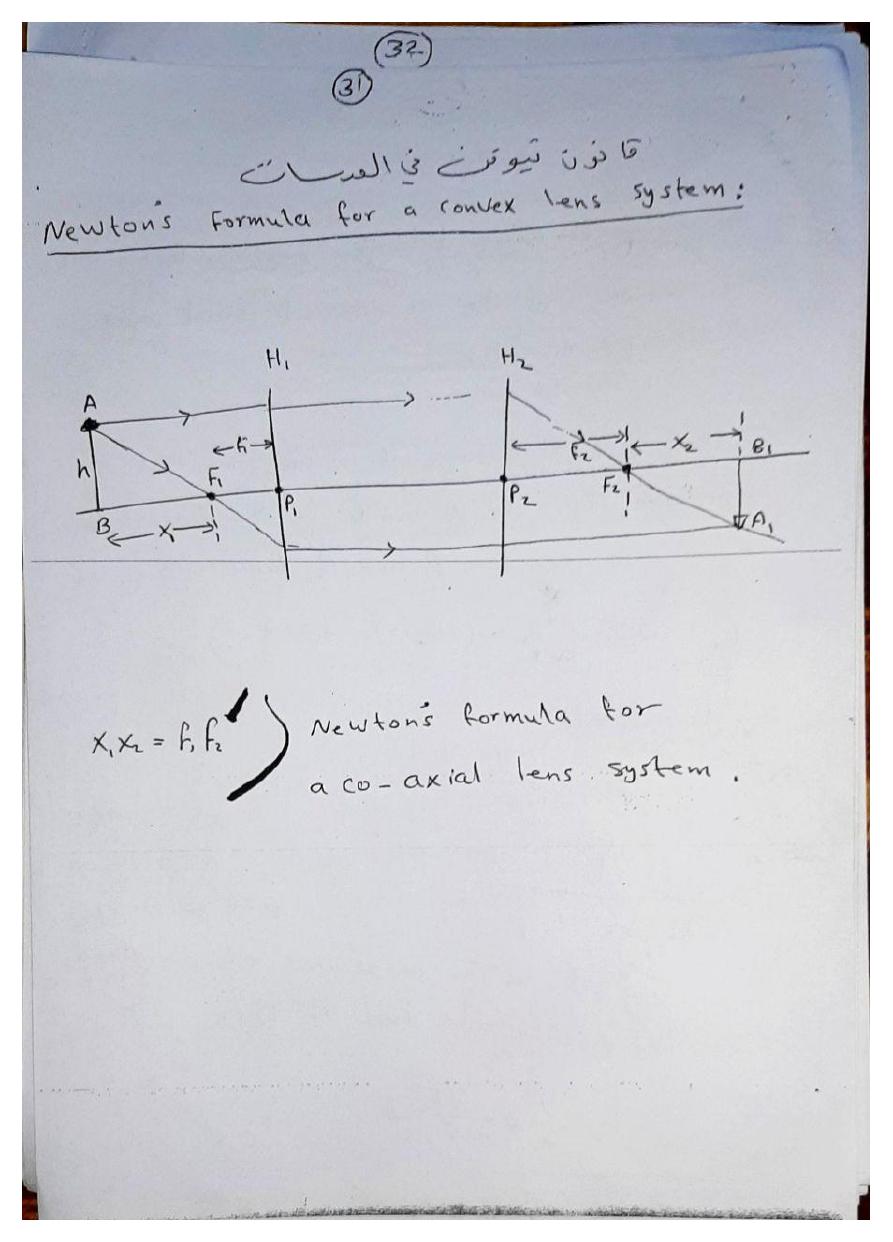 32
31
قانون نيوتن في العدسات
Newton's Formula for a convex lens system:
H₁ H₂
A
h
F₁
f₁
B
x₁
P₁
P₂
f₂
F₂
x₂
B₁
A₁
x₁x₂ = f₁f₂ ) Newton's formula for
a co-axial lens system.